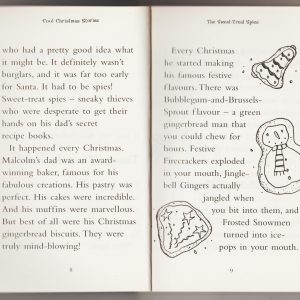 Cool Christmas Stories
who had a pretty good idea what
it might be. It definitely wasn't
burglars, and it was far too early
for Santa. It had to be spies!
Sweet-treat spies – sneaky thieves
who were desperate to get their
hands on his dad's secret
recipe books.
It happened every Christmas.
Malcolm's dad was an award-
winning baker, famous for his
fabulous creations. His pastry was
perfect. His cakes were incredible.
And his muffins were marvellous.
But best of all were his Christmas
gingerbread biscuits. They were
truly mind-blowing!
8
The Sweet-Treat Spies
Every Christmas
he started making
his famous festive
flavours. There was
Bubblegum-and-Brussels-
Sprout flavour – a green
gingerbread man that
you could chew for
hours. Festive
Firecrackers exploded
in your mouth, Jingle-
bell Gingers actually
jangled when
you bit into them, and
Frosted Snowmen
turned into ice-
pops in your mouth.
9